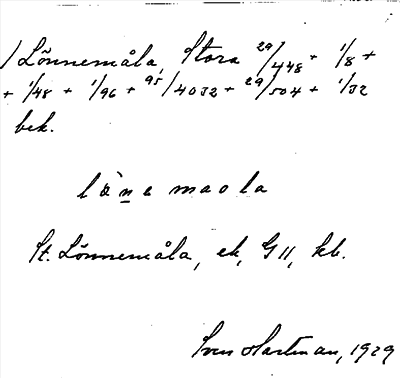 / Lönnemåla, Stora 29/448 + 1/8 +
+ 1/48 + 1/96 + 95/4032 + 29/504 + 1/32
bek.
lön e maola
St. Lönnemåla, ek, G 11, kb.
Sven Hartman, 1929